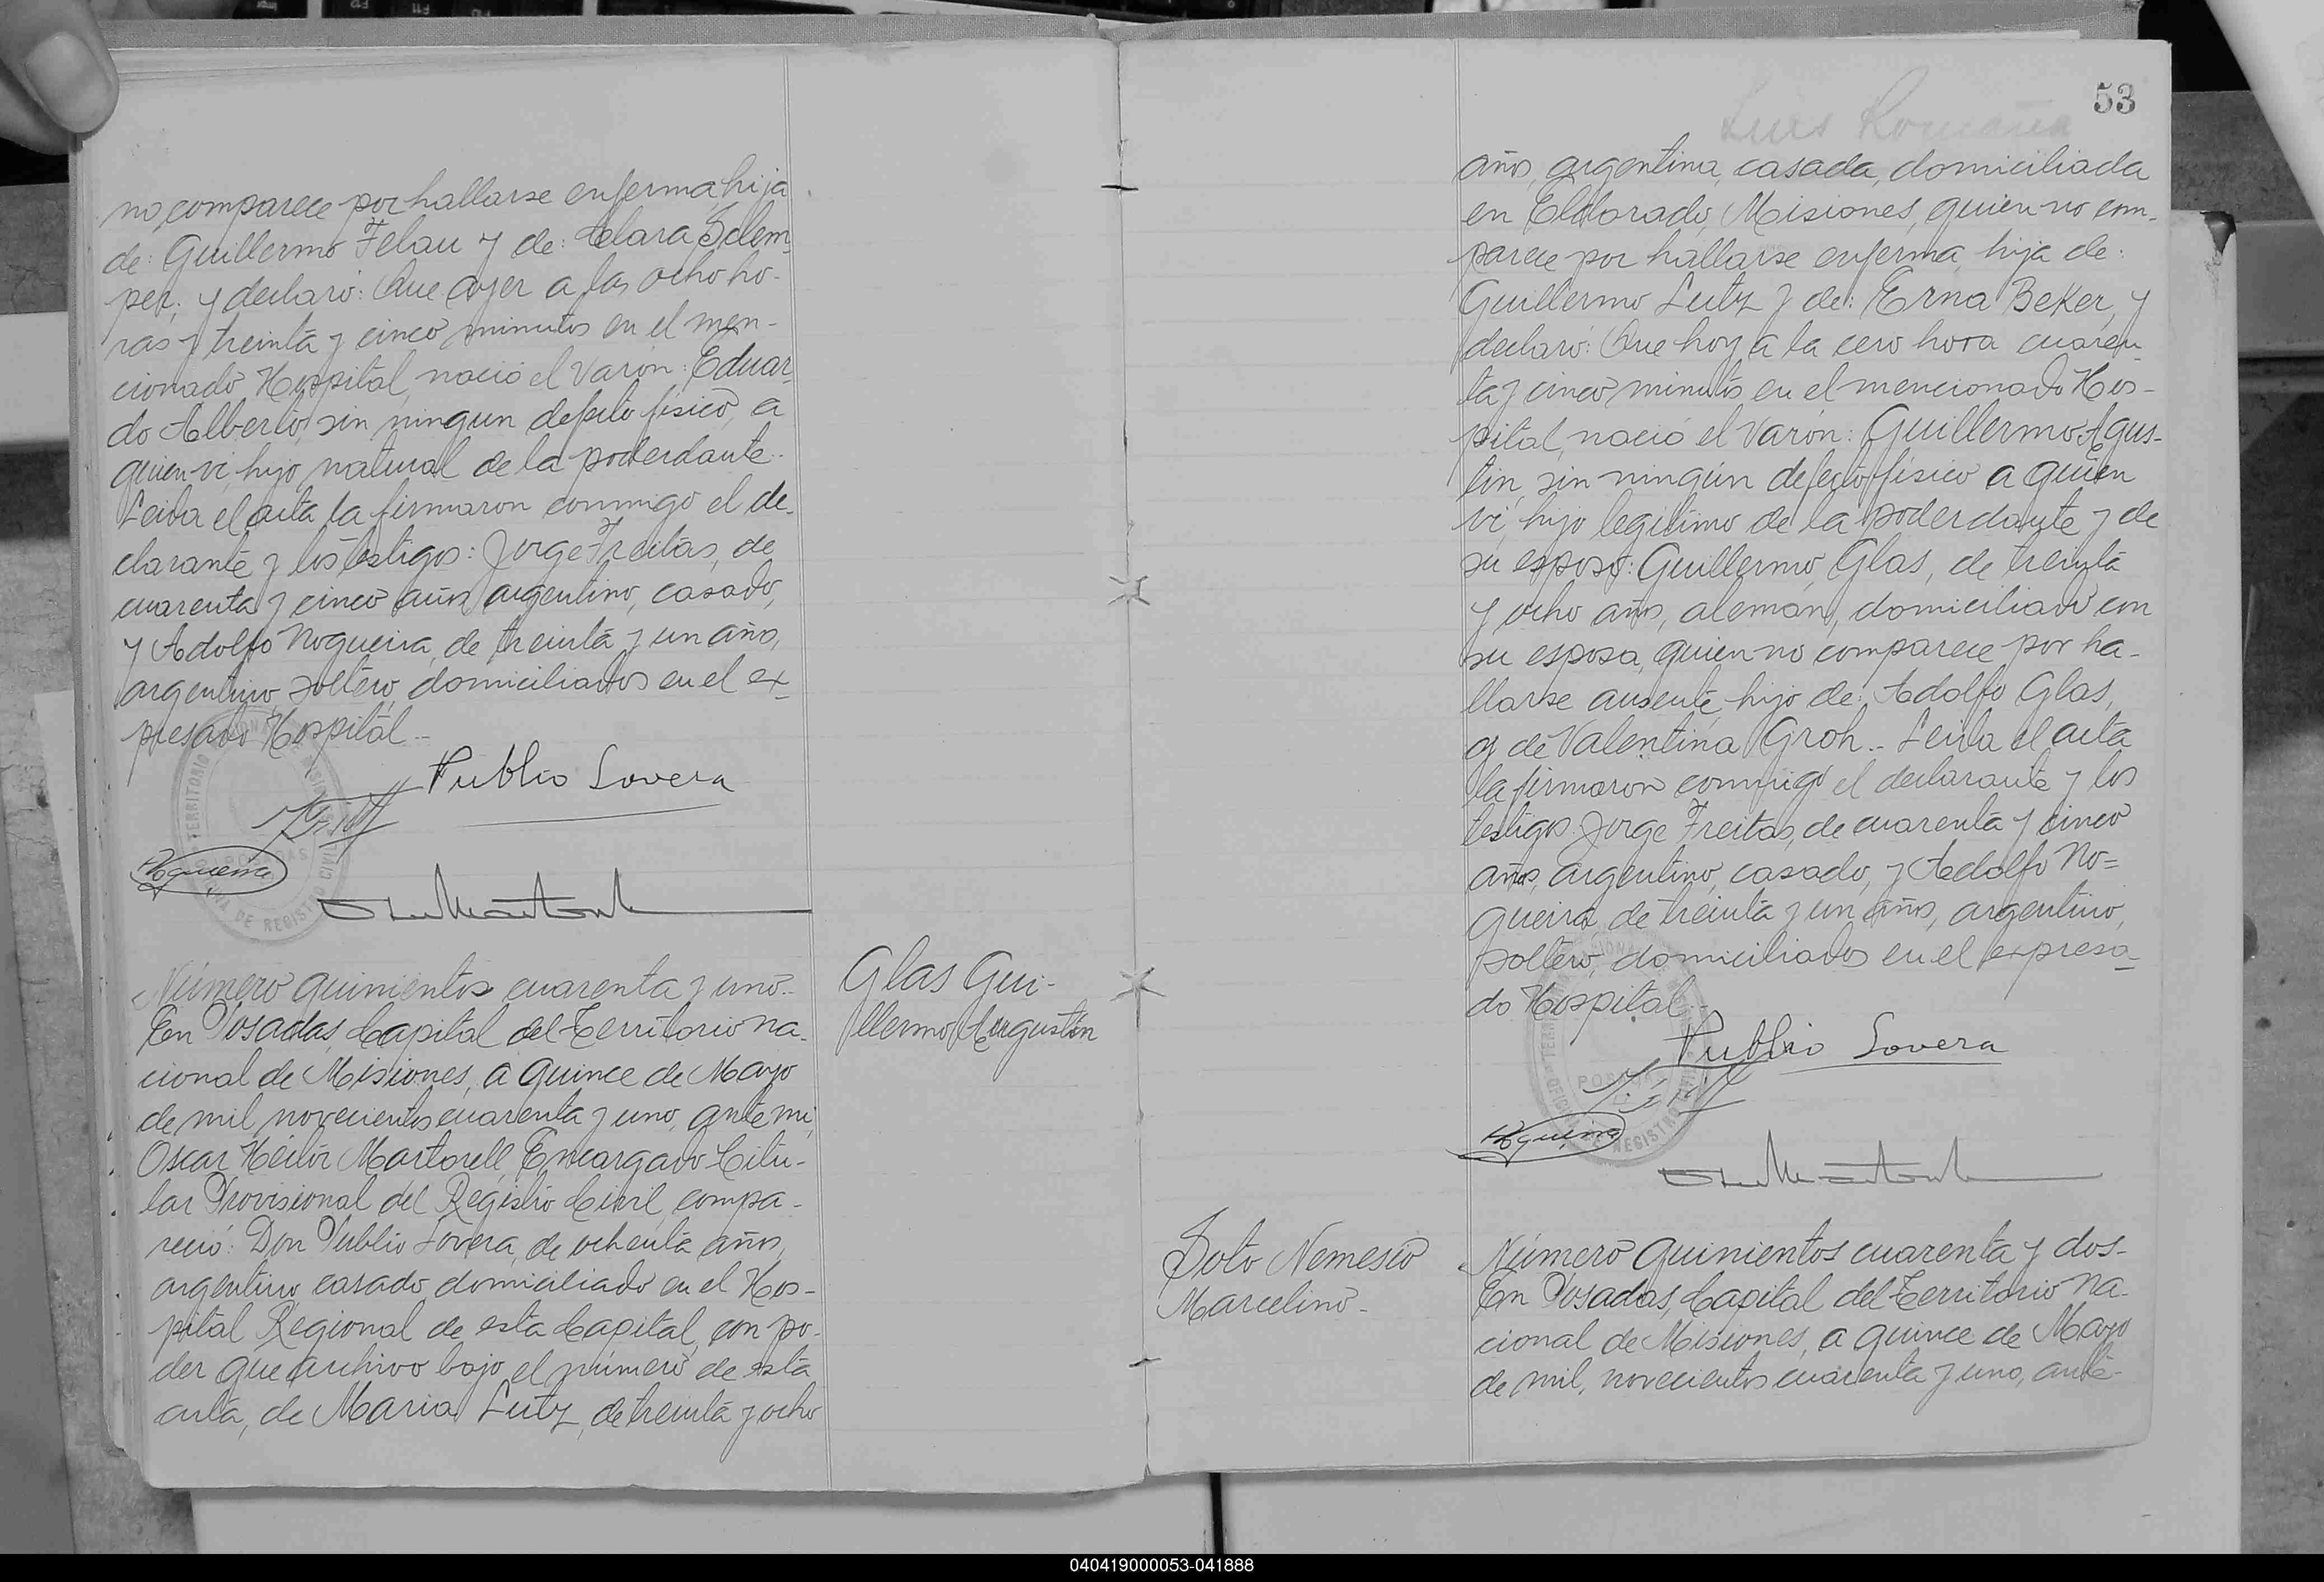 no comparece por hallarse enferma, hija
de: Guillermo Felau y de: Clara Selem-
per; y declaró: Que ayer a las ocho ho-
ras y treinta y cinco minutos en el men-
cionado Hospital, nació el Varón: Eduar-
do Alberto, sin ningun defecto físico, a
quien ví, hijo natural de la poderdante.-
Leida el acta la firmaron conmigo el de-
clarante y los testigos: Jorge Freitas, de
cuarenta y cinco años argentino, casado,
y Adolfo Nogueira, de treinta y un años,
argentino, soltero, domiciliados en el ex-
presado Hospital.-
Publio Lovera
Nogueira
Número quinientos cuarenta y uno.-
En Posadas, Capital del Territorio na-
cional de Misiones, a quince de Mayo
de mil, novecientos cuarenta y uno, ante mi,
Oscar Héctor Martorell, Encargado Titu-
lar Provisional del Registro Civil, compa-
reció: Don Publio Lovera, de ochenta años,
argentino casado, domiciliado en el Hos-
pital Regional de esta Capital, con po-
der que archivo bajo el número de esta
acta, de Maria Lutz, de treinta y ocho
Glas Gui-
llermo Augustín
53
Luis Romaña
años, argentina, casada, domiciliada
en Eldorado, Misiones, quien no com-
parece por hallarse enferma, hija de:
Guillermo Lutz y de: Erna Beker, y
declaró: Que hoy a la cero hora cuaren-
ta y cinco minutos en el mencionado Hos-
pital, nació el Varón: Guillermo Agus-
tín, sin ningún defecto físico a quien
ví, hijo legítimo de la poderdante y de
su esposo: Guillermo Glas, de treinta
y ocho años, alemán, domiciliado con
su esposa, quien no comparece por ha-
llarse ausente, hijo de: Adolfo Glas,
y de Valentina Groh.- Leida el acta
la firmaron conmigo el declarante y los
testigos: Jorge Freitas, de cuarenta y cinco
años, argentino, casado, y Adolfo No=
gueira, de treinta y un años, argentino,
soltero, domiciliados en el expresa-
do Hospital.-
Publio Lovera
Nogueira
Soto Nemesio
Marcelino-
Número quinientos cuarenta y dos-
En Posadas, Capital del Territorio na-
cional de Misiones, a quince de Mayo
de mil, novecientos cuarenta y uno, ante-
040419000053-041888